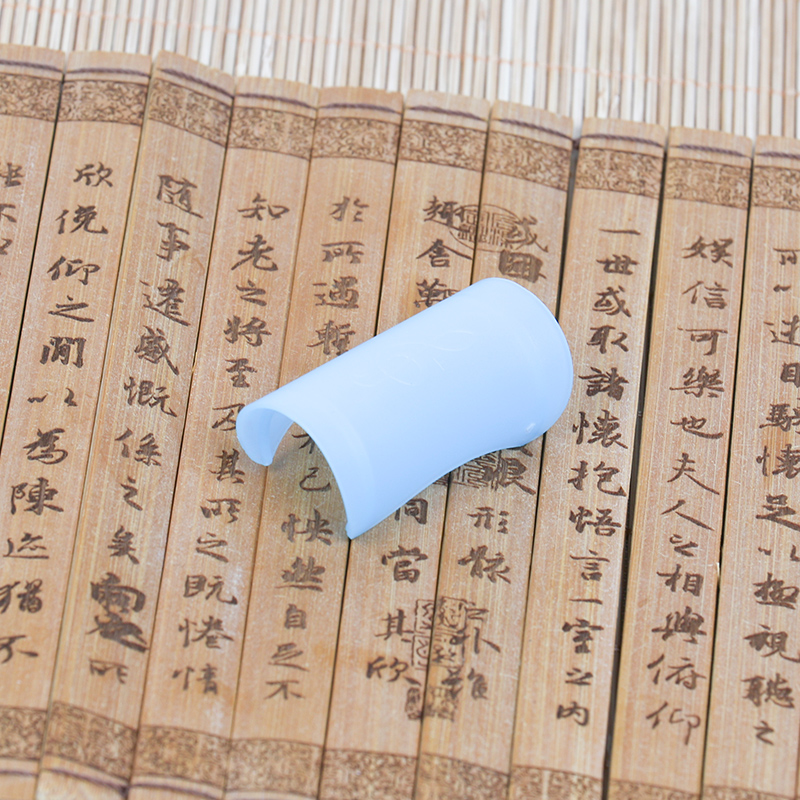 所以遊目騁懷足以極視聽之
娛信可樂也夫人之相與俯仰
一世或取諸懷抱悟言一室之內
或因浪形骸之外雖
趣舍萬同當其欣
於所遇暫己怏然自足不
知老之將至及其所之既惓情
隨事遷感慨係之矣向之所
欣俛仰之閒以為陳迹猶不